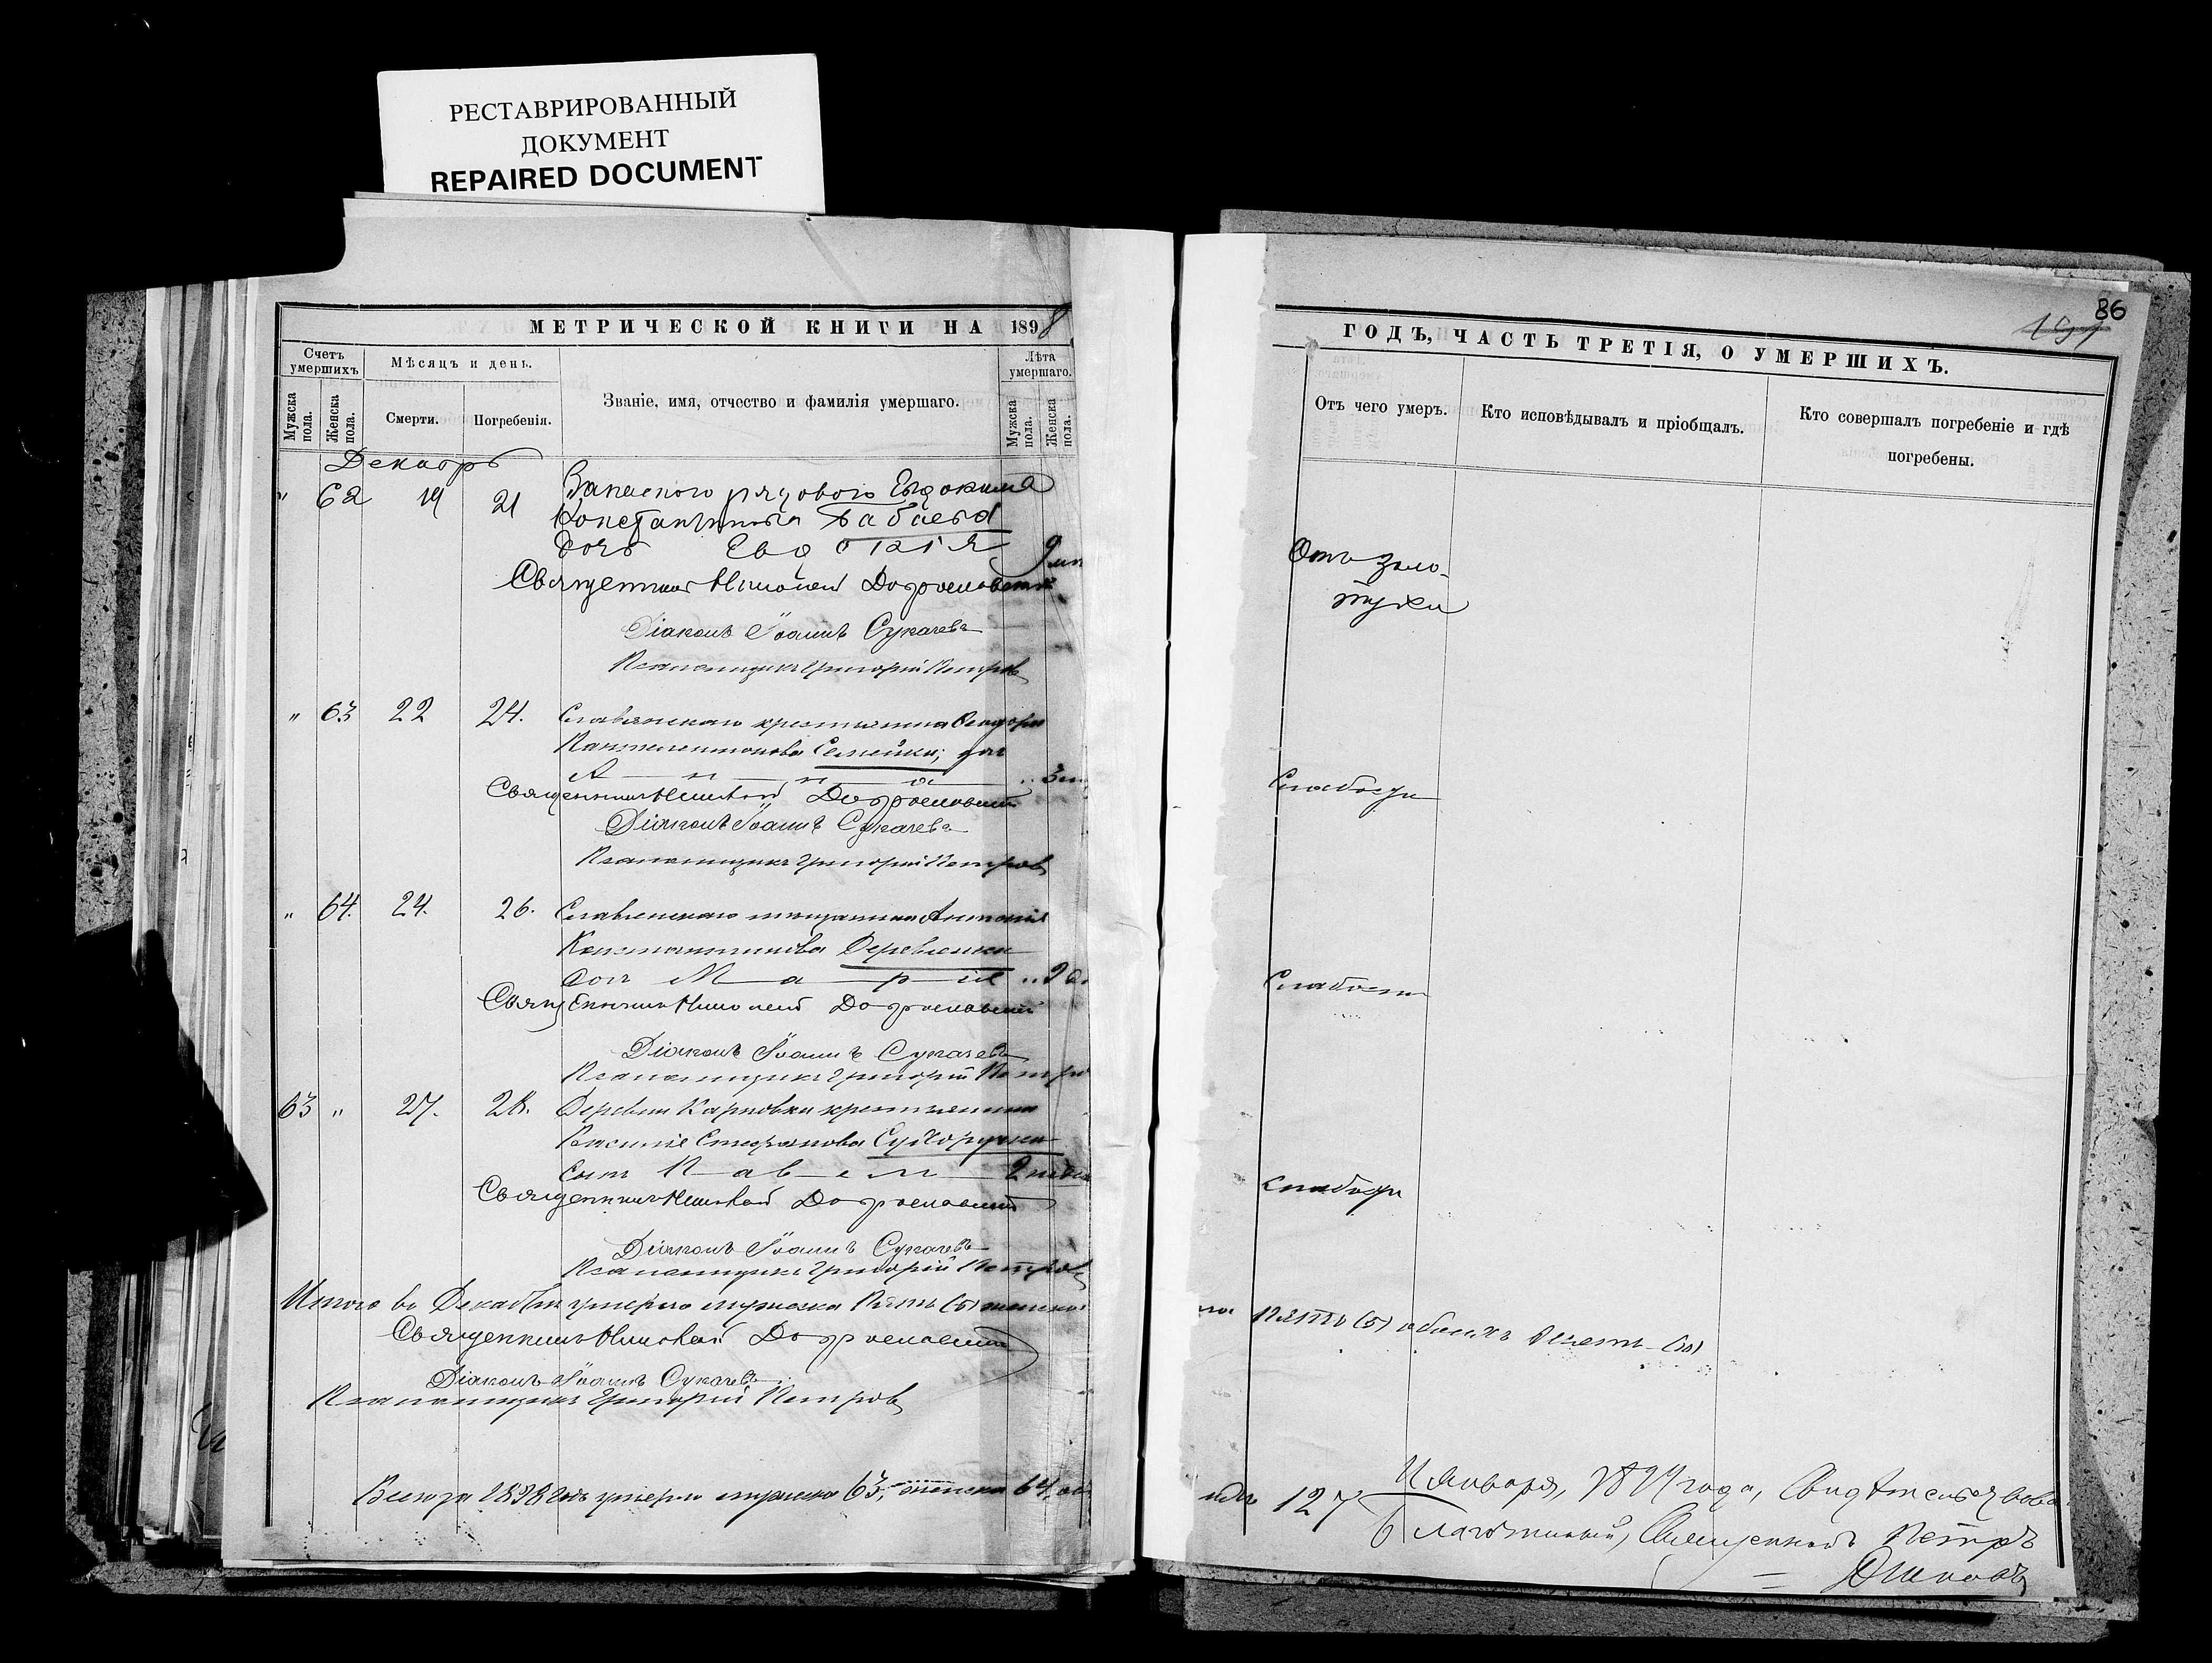 РЕСТАВРИРОВАННЫЙ
ДОКУМЕНТ
REPAIRED DOCUMENT
МЕТРИЧЕСКОЙ КНИГИ НА 1898
Счетъ умершихъ
Мѣсяцъ и день.
Званіе, имя, отчество и фамилія умершаго.
Лѣта умершаго.
Мужска пола.
Женска пола.
Смерти.
Погребенія.
Мужска пола.
Женска пола.
Декабрь
" 62 19 21 Запаснаго рядового Евдокима
Константинова Бабаева
дочь Евдокія 9
Священникъ Николай Доброславскій
Діаконъ Іоаннъ Сукачевъ
Псаломщикъ Григорій Петровъ
" 63 22 24. Славянскаго крестьянина
Пантелеимонова Семейки, дочь
Анна " 3
Священникъ Николай Доброславскій
Діаконъ Іоаннъ Сукачевъ
Псаломщикъ Григорій Петровъ
" 64. 24. 26. Славянскаго мѣщанина Антонія
Константинова Деревянки
дочь Марія " 2
Священникъ Николай Доброславскій
Діаконъ Іоаннъ Сукачевъ
Псаломщикъ Григорій Петро
63 " 27. 28. Деревни Карповки крестьянина
Василія Стефанова Сухоручки
сынъ Павелъ 2
Священникъ Николай Доброславскій
Діаконъ Іоаннъ Сукачевъ
Псаломщикъ Григорій Петровъ
Итого въ Декабрѣ умерло мужска Пять (5) женска
Священникъ Николай Доброславскій
Діаконъ Іоаннъ Сукачевъ
Псаломщикъ Григорій Петровъ
Всего за 1898 годъ умерло мужска 63, женска 64, об
86
ГОДЪ, ЧАСТЬ ТРЕТІЯ, О УМЕРШИХЪ.
Отъ чего умеръ.
Кто исповѣдывалъ и пріобщалъ.
Кто совершалъ погребеніе и гдѣ погребены.
Отъ золо-
тухи
Слабости
Слабости
Слабости
Пять (5) обоихъ Десять (10)
127
Января, года, Свидѣтельствова
Благочинный, Священникъ Петръ